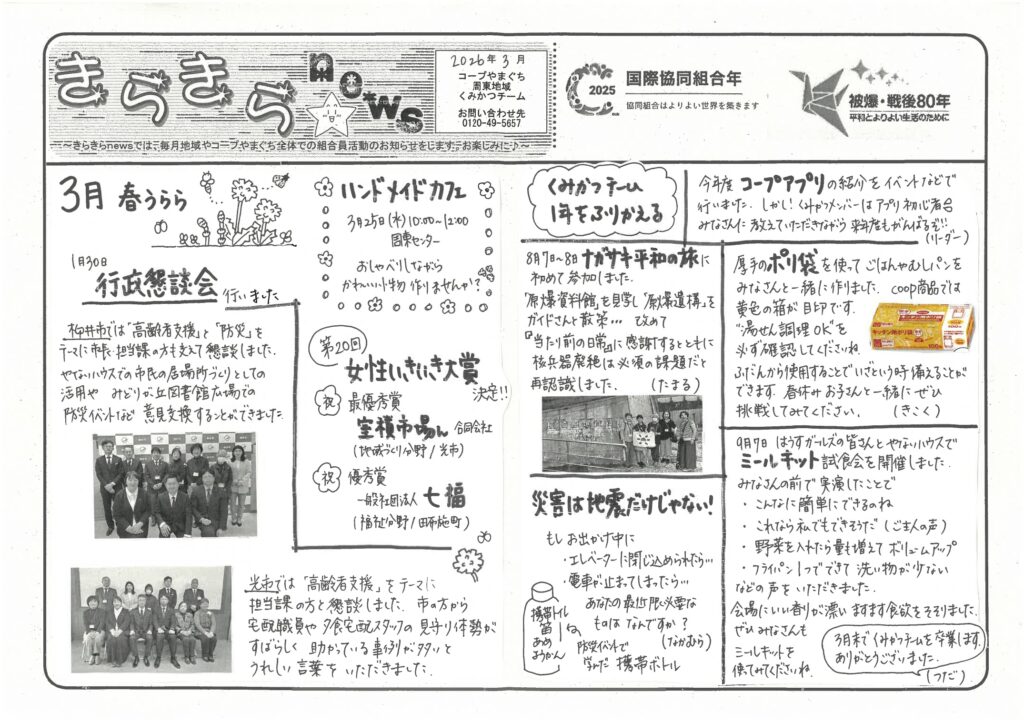 きらきらnews
2026年3月
コープやまぐち
周東地域
くみかつチーム
お問い合わせ先
0120-49-5657
～きらきらnewsでは、毎月地域やコープやまぐち全体での組合員活動のお知らせをします。お楽しみに♪～
2025
国際協同組合年
協同組合はよりよい世界を築きます
被爆・戦後80年
平和とよりよい生活のために
3月 春うらら
1月30日
行政懇談会 行いました
柳井市では「高齢者支援」と「防災」を
テーマに市長・担当課の方も交えて懇談しました。
やないハウスでの市民の居場所づくりとしての
活用や みどりが丘図書館広場での
防災イベントなど 意見交換することができました。
光市では「高齢者支援」をテーマに
担当課の方と懇談しました。市の方から
宅配職員や夕食宅配スタッフの見守り体勢が
すばらしく 助かっている事例が多いと
うれしい言葉をいただきました。
ハンドメイドカフェ
3月25日(水)10:00~12:00
周東センター
おしゃべりしながら
かわいい小物 作りませんか?
第20回
女性いきいき大賞
決定!!
祝 最優秀賞
室積市場ん 合同会社
(地域づくり分野/光市)
祝 優秀賞
一般社団法人 七福
(福祉分野/田布施町)
くみかつチーム
1年をふりかえる
今年度 コープアプリの紹介をイベントなどで
行いました。しかし!くみかつメンバーはアプリ初心者
みなさんに教えていただきながら 来年度もがんばるぞ!!
(リーダー)
8月7日~8日 ナガサキ平和の旅に
初めて参加しました。
「原爆資料館」を見学し「原爆遺構」を
ガイドさんと散策… 改めて
『当たり前の日常』に感謝するとともに
核兵器廃絶は必須の課題だと
再認識しました。 (たまる)
厚手のポリ袋を使って ごはんやむしパンを
みなさんと一緒に作りました。coop商品では
黄色の箱が目印です。
"湯せん調理OK"を
必ず確認してくださいね
ふだんから使用することでいざという時備えることが
できます。春休み お子さんと一緒にぜひ
挑戦してみてください。 (きこく)
災害は地震だけじゃない!
もし お出かけ中に
・エレベーターに閉じ込められたら…
・電車が止まってしまったら…
あなたの最低限必要な
ものは なんですか?
(なかむら)
防災イベントで
学んだ 携帯ボトル
携帯トイレ
笛
あめ
ようかん
9月7日 はうすガールズの皆さんとやないハウスで
ミールキット試食会を開催しました。
みなさんの前で実演したことで
・こんなに簡単にできるのね
・これなら私でもできそうだ(ご主人の声)
・野菜を入れたら量も増えて ボリュームアップ
・フライパン1つでできて 洗い物が少ない
などの声をいただきました。
会場にいい香りが漂い ますます食欲をそそりました。
ぜひ みなさんも
ミールキットを
使ってみてくださいね。
3月末でくみかつチームを卒業します。
ありがとうございました。
(つだ)